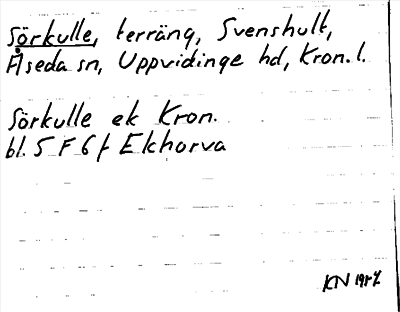 Sörkulle, terräng, Svenshult,
Åseda sn, Uppvidinge hd, Kron. l.
Sörkulle ek Kron.
bl. 5 F 6 f Ekhorva
KN